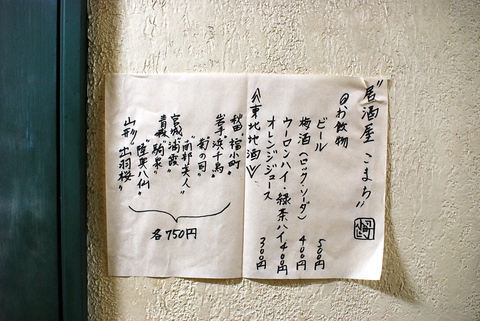 "居酒屋 こまち"
◎お飲物
ビール 500円
梅酒(ロック・ソーダ) 400円
ウーロンハイ・緑茶ハイ 400円
オレンジジュース 300円
《東北地酒》
秋田 "小町"
岩手 "浜千鳥"
"菊の司"
"南部美人"
宮城 "浦霞"
青森 "駒泉"
"陸奥八仙"
山形 "出羽桜"
各750円